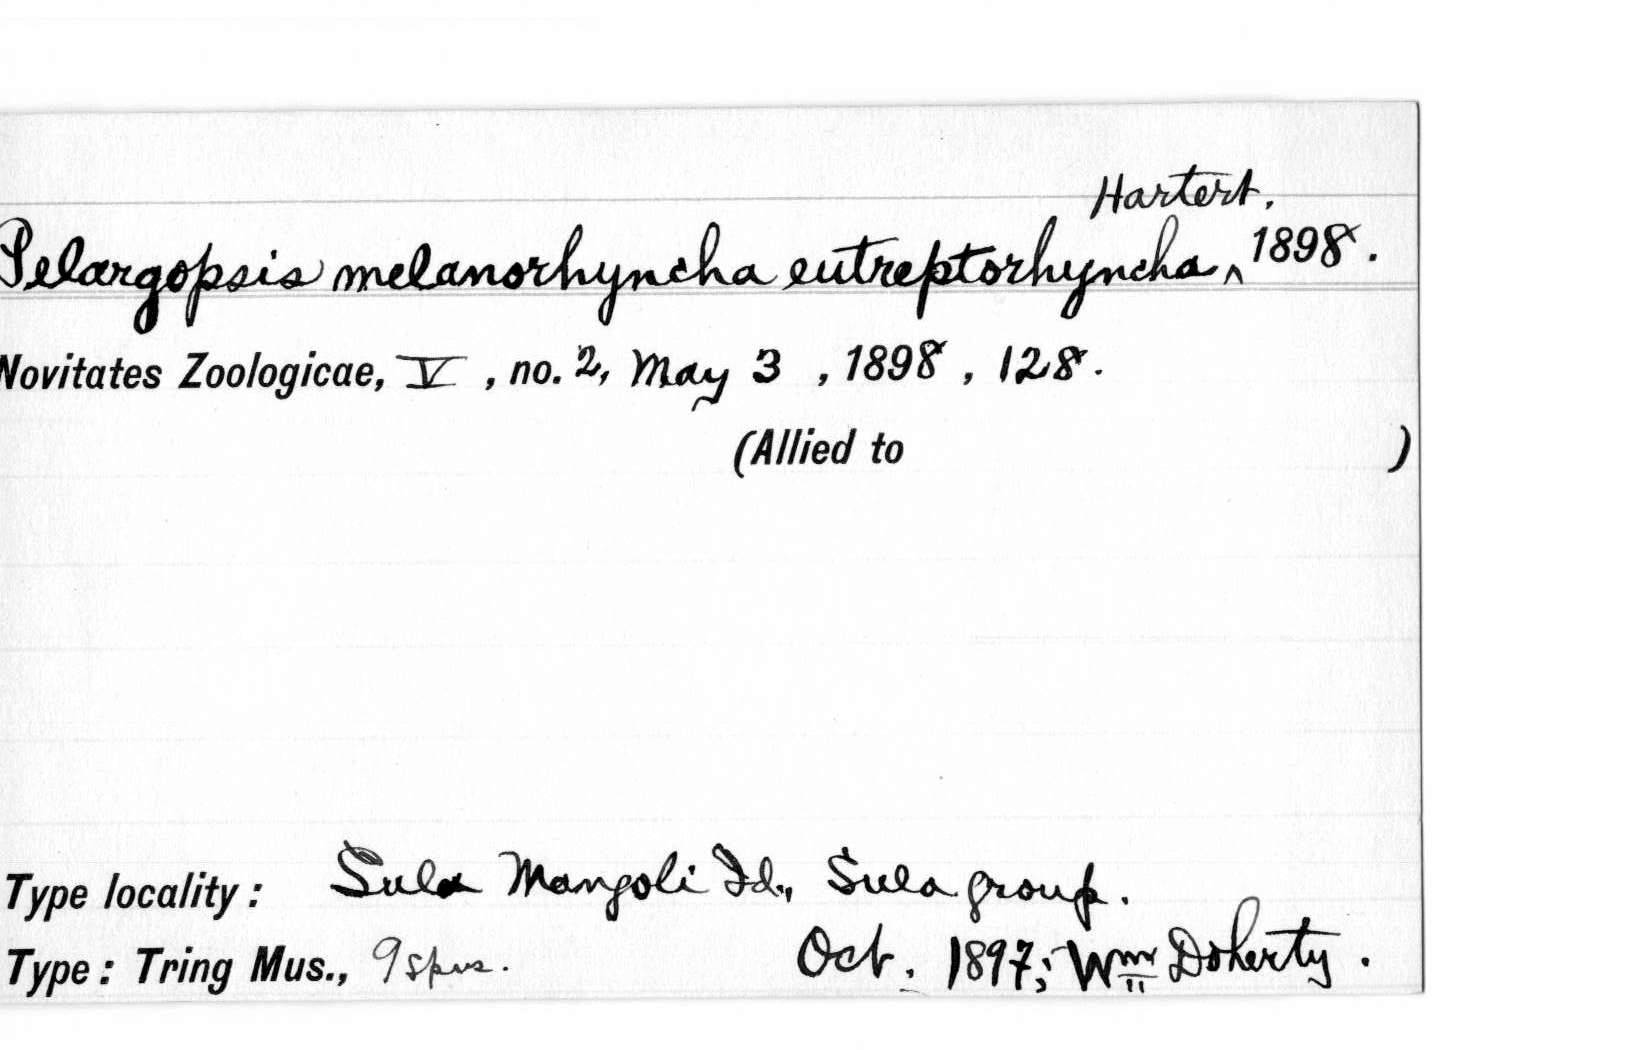 Pelargopsis melanorhyncha eutreptorhyncha ^ Hartert, 1898.
Novitates Zoologicae, V, no. 2, May 3, 1898, 128.
(Allied to )
Type locality: Sula Mangoli Id., Sula group.
Type: Tring Mus., 9 spns. Oct. 1897; Wm Doherty.